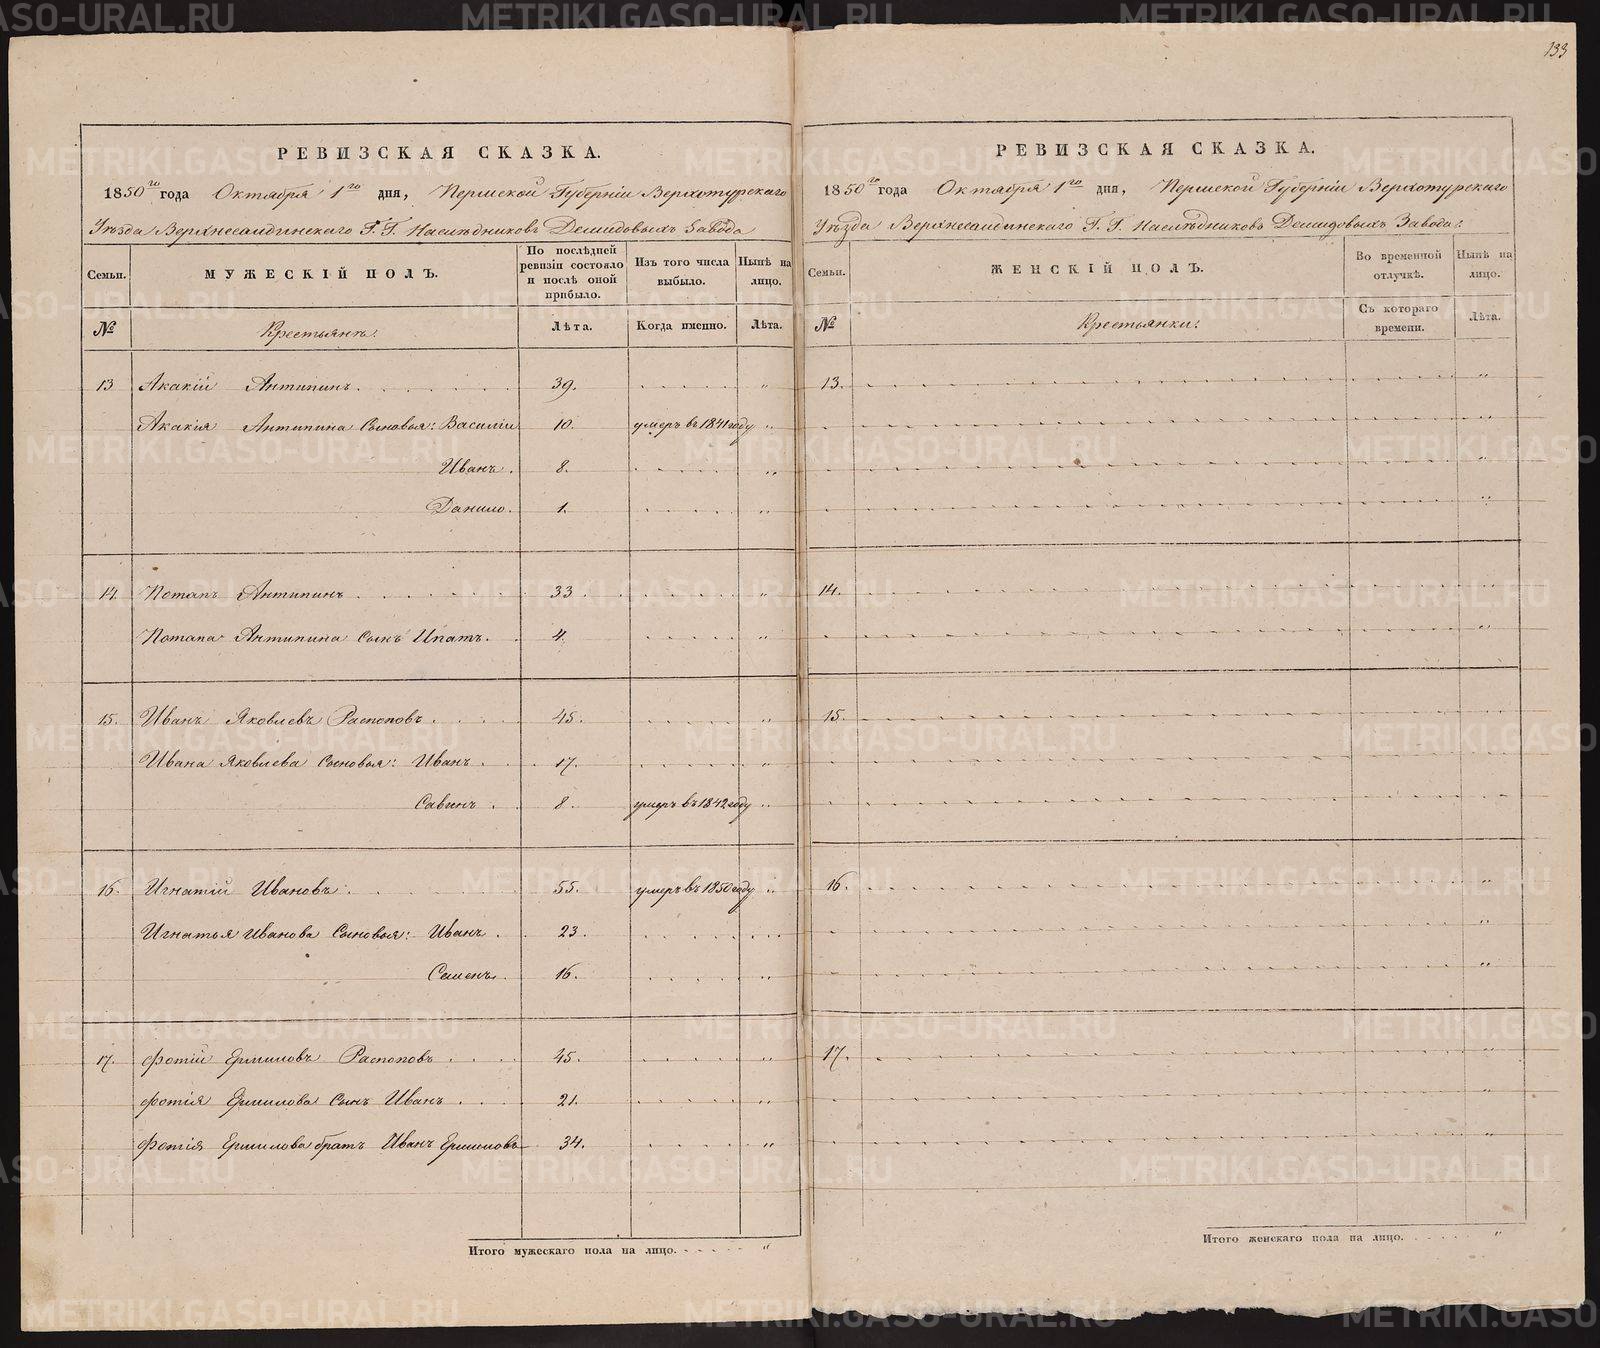 133
РЕВИЗСКАЯ СКАЗКА.
1850го года Октября 1го дня, Пермской Губерніи Верхотурскаго
Уѣзда Верхнесалдинскаго Г. Г. Наслѣдниковъ Демидовыхъ Завода
Семьи. МУЖЕСКІЙ ПОЛЪ. По послѣдней ревизіи состояло и послѣ оной прибыло. Изъ того числа выбыло. Нынѣ на лицо.
№ Крестьянъ: Лѣта. Когда именно. Лѣта.
13 Акакій Антипинъ. 39. "
Акакія Антипина Сыновья: Василій 10. умеръ въ 1841 году "
Иванъ. 8. "
Данило. 1. "
14. Потапъ Антипинъ 33. "
Потапа Антипина Сынъ Ипатъ. 4. "
15. Иванъ Яковлевъ Распоповъ 45. "
Ивана Яковлева Сыновья: Иванъ. 17. "
Савинъ. 8. умеръ въ 1842 году "
16. Игнатій Ивановъ. 55. умеръ въ 1850 году "
Игнатья Иванова Сыновья: Иванъ. 23.
Семенъ. 16. "
17. Фотій Ермиловъ Распоповъ 45. "
Фотія Ермилова Сынъ Иванъ. 21. "
Фотія Ермилова братъ Иванъ Ермиловъ 34. "
Итого мужескаго пола на лицо. "
РЕВИЗСКАЯ СКАЗКА.
1850го года Октября 1го дня, Пермской Губерніи Верхотурскаго
Уѣзда Верхнесалдинскаго Г. Г. Наслѣдниковъ Демидовыхъ Завода:
Семьи. ЖЕНСКІЙ ПОЛЪ. Во временной отлучкѣ. Нынѣ на лицо.
№ Крестьянки: Съ котораго времени. Лѣта.
13. "
"
"
"
14. "
"
15.
16. "
"
"
17. "
"
"
Итого женскаго пола на лицо. "
METRIKI.GASO-URAL.RU